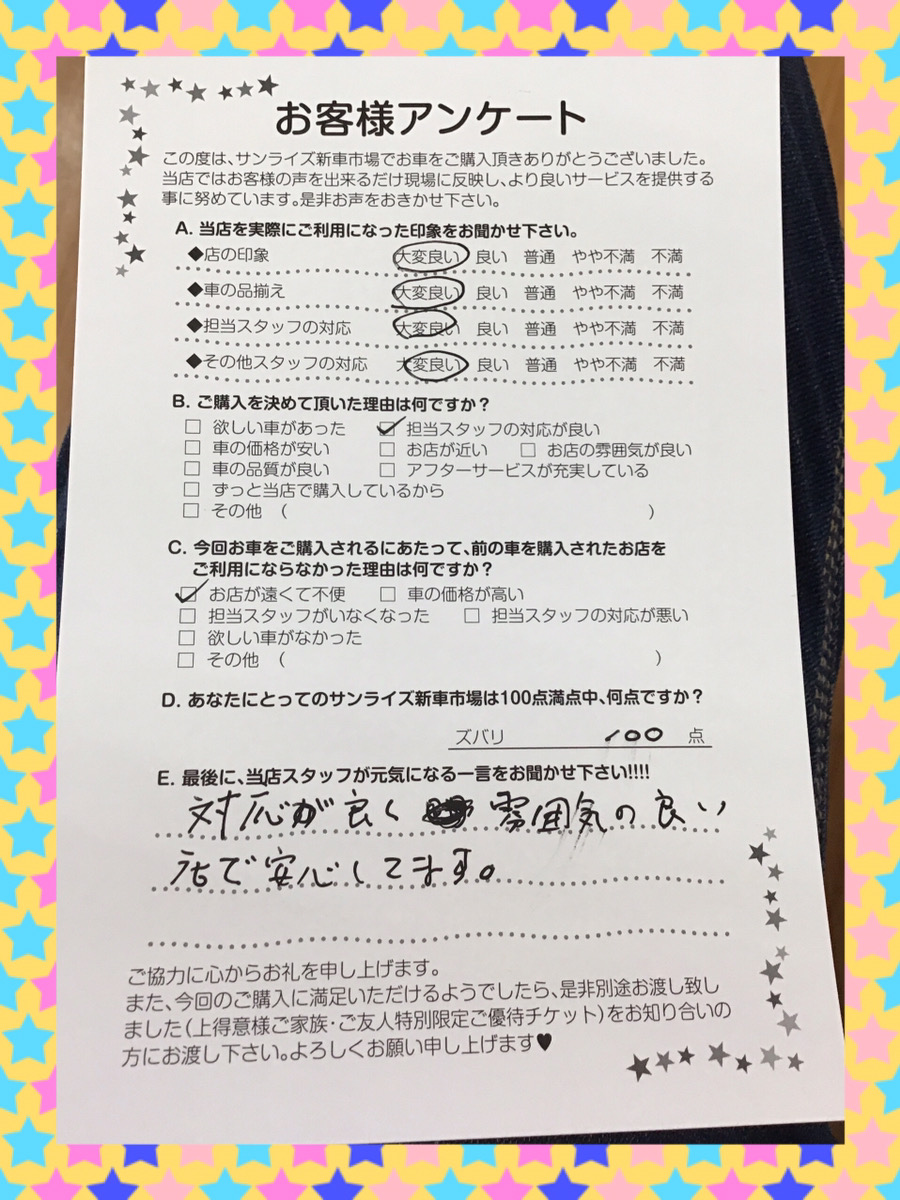 お客様アンケート
この度は、サンライズ新車市場でお車をご購入頂きありがとうございました。
当店ではお客様の声を出来るだけ現場に反映し、より良いサービスを提供する
事に努めています。是非お声をおきかせ下さい。
A. 当店を実際にご利用になった印象をお聞かせ下さい。
◆店の印象 大変良い 良い 普通 やや不満 不満
◆車の品揃え 大変良い 良い 普通 やや不満 不満
◆担当スタッフの対応 大変良い 良い 普通 やや不満 不満
◆その他スタッフの対応 大変良い 良い 普通 やや不満 不満
B. ご購入を決めて頂いた理由は何ですか?
□ 欲しい車があった ☑ 担当スタッフの対応が良い
□ 車の価格が安い □ お店が近い □ お店の雰囲気が良い
□ 車の品質が良い □ アフターサービスが充実している
□ ずっと当店で購入しているから
□ その他 ( )
C. 今回お車をご購入されるにあたって、前の車を購入されたお店を
ご利用にならなかった理由は何ですか?
☑ お店が遠くて不便 □ 車の価格が高い
□ 担当スタッフがいなくなった □ 担当スタッフの対応が悪い
□ 欲しい車がなかった
□ その他 ( )
D. あなたにとってのサンライズ新車市場は100点満点中、何点ですか?
ズバリ 100 点
E. 最後に、当店スタッフが元気になる一言をお聞かせ下さい!!!!
対応が良く 雰囲気の良い
店で安心してます。
ご協力に心からお礼を申し上げます。
また、今回のご購入に満足いただけるようでしたら、是非別途お渡し致し
ました(上得意様ご家族・ご友人特別限定ご優待チケット)をお知り合いの
方にお渡し下さい。よろしくお願い申し上げます♥